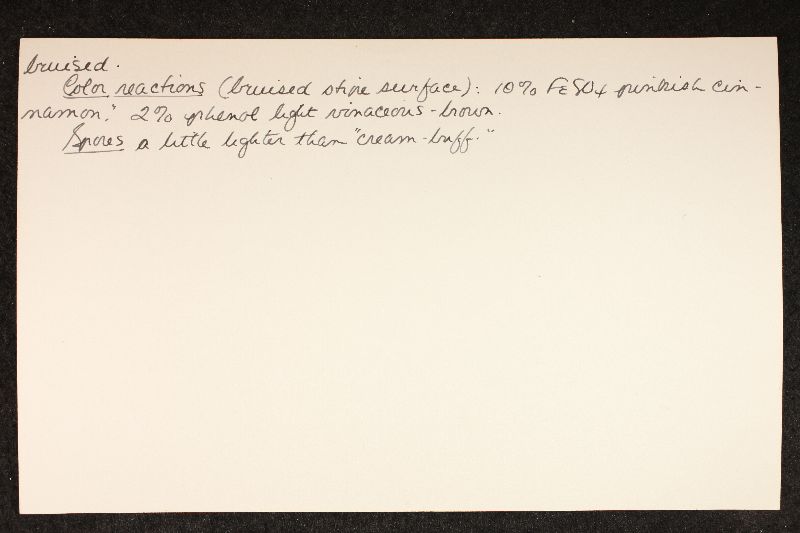 bruised.
Color reactions (bruised stipe surface): 10% FeSO4 pinkish cin-
namon." 2% phenol light vinaceous-brown.
Spores a little lighter than "cream-buff."